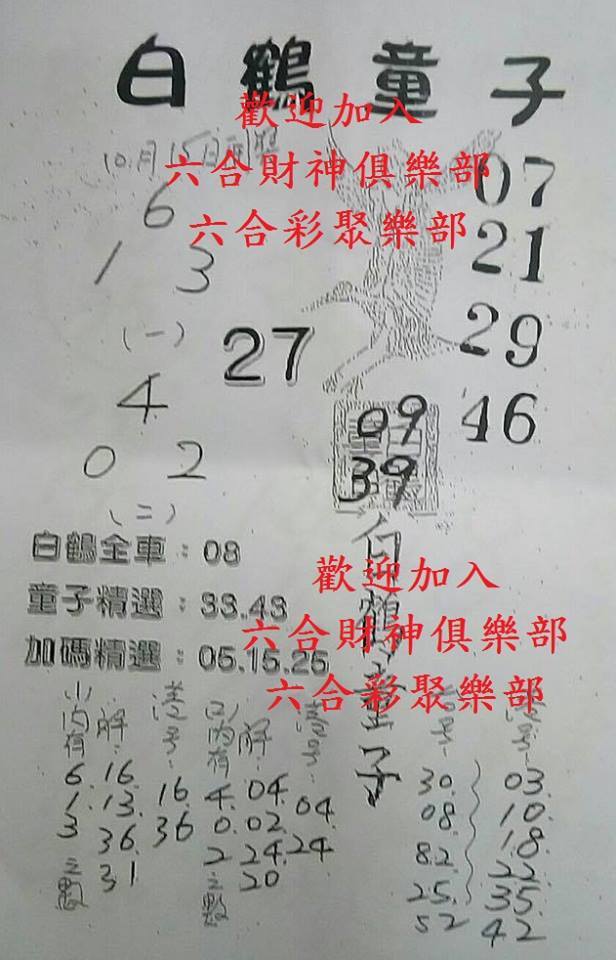 白鶴童子
歡迎加入
六合財神俱樂部
六合彩聚樂部
10月15日
6
1 3
(一)
4
0 2
(二)
27
07
21
29
46
09
39
白鶴童子
白鶴全車：08
童子精選：33.43
加碼精選：05.15.25
歡迎加入
六合財神俱樂部
六合彩聚樂部
(一)內有
6.
1.
3
之數
解：
16.
13.
36.
31
港号：
16.
36
(二)內有
4.
0.
2
之數
解：
04.
02.
24.
20
港号：
04.
24
号：
30.
08.
82.
25.
52
港号：
03.
10.
18.
22.
35.
42